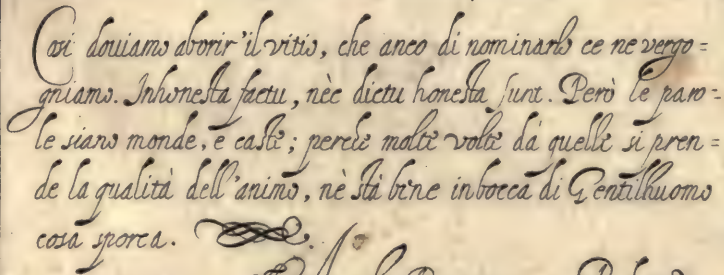 Così douiamo aborir' il vitio, che anco di nominarlo ce ne vergo=
gniamo. Inhonesta factu, nèc dictu honesta sunt. Però le paro=
le siano monde, e caste; perche molte volte dà quelle si pren=
de la qualità dell'animo, nè stà bene in bocca di Gentilhuomo
cosa sporca.